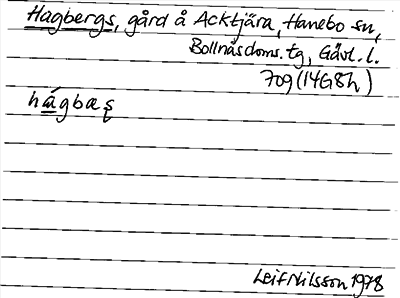 Hagbergs, gård å Acktjära, Hanebo sn,
Bollnäs doms. tg, Gävl. l.
709 (14G8h)
hágbæş
Leif Nilsson 1978